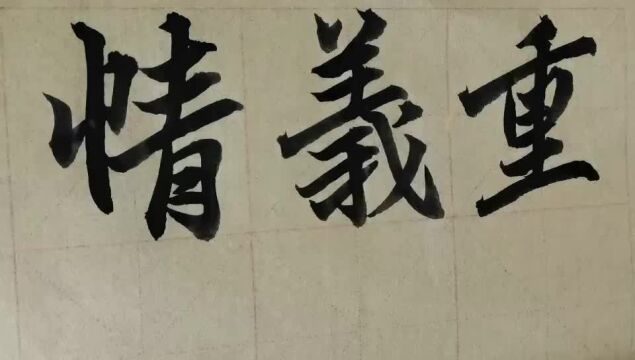 重義情